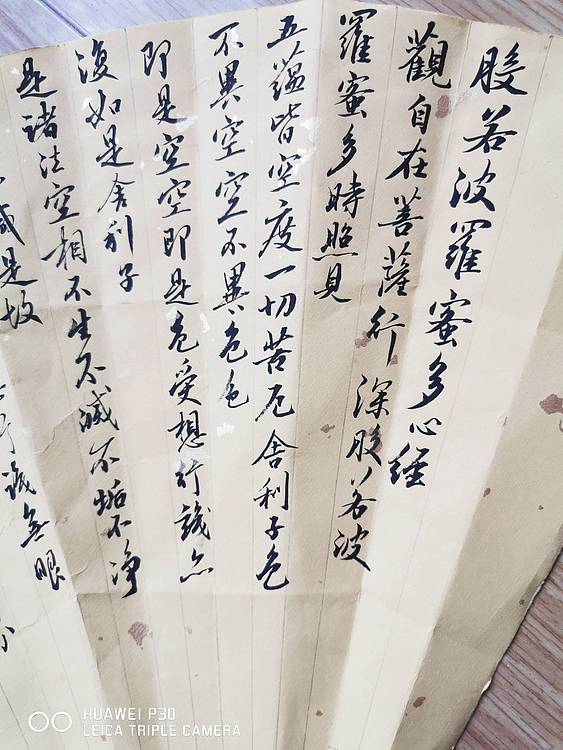 般若波羅蜜多心經
觀自在菩薩行深般若波
羅蜜多時照見
五蘊皆空度一切苦厄舍利子色
不異空空不異色色
即是空空即是色受想行識亦
復如是舍利子
是諸法空相不生不滅不垢不净
減是故
行識無眼
HUAWEI P30
LEICA TRIPLE CAMERA